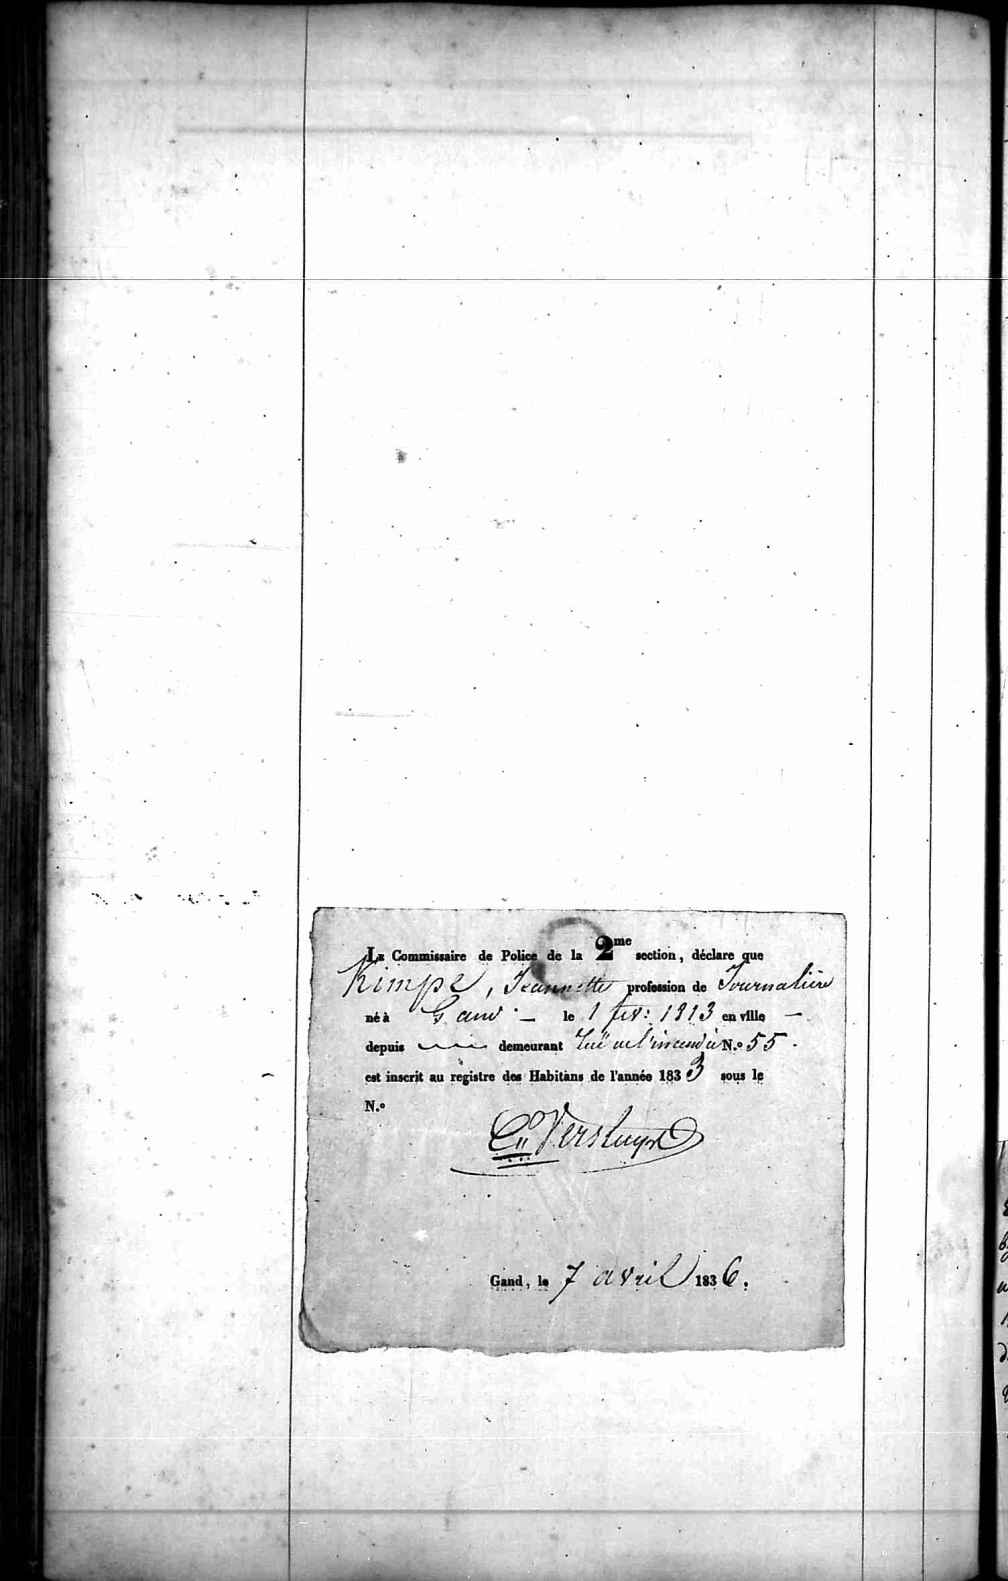 Le Commissaire de Police de la 2me section, déclare que
Kimpe, Jeannette profession de Journalière
né à Gand — le 1 fev: 1813 en ville —
depuis demeurant Rue de l'incendie N.o 55.
est inscrit au registre des Habitans de l'année 1833 sous le
N.o
Versluys
Gand, le 7 avril 1836.